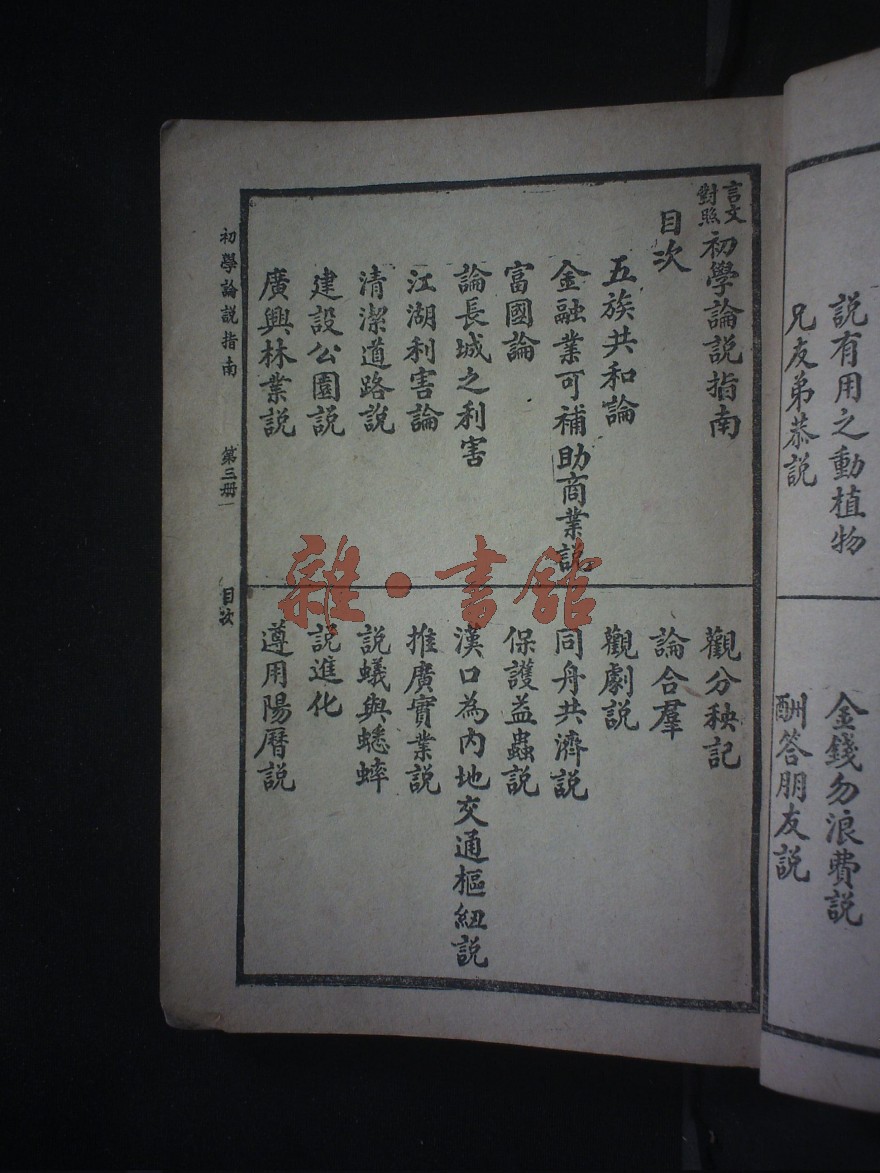 說有用之動植物
兄友弟恭説
金錢勿浪費説
酬答朋友説
言文
對照
初學論説指南
目次
五族共和論
金融業可補助商業説
富國論
論長城之利害
江湖利害論
清潔道路説
建設公園説
廣興林業説
觀分秧記
論合羣
觀劇説
同舟共濟説
保護益蟲説
漢口為内地交通樞紐説
推廣實業説
説蟻與蟋蟀
説進化
遵用陽曆説
初學論説指南 第三册 目次
雜·書館